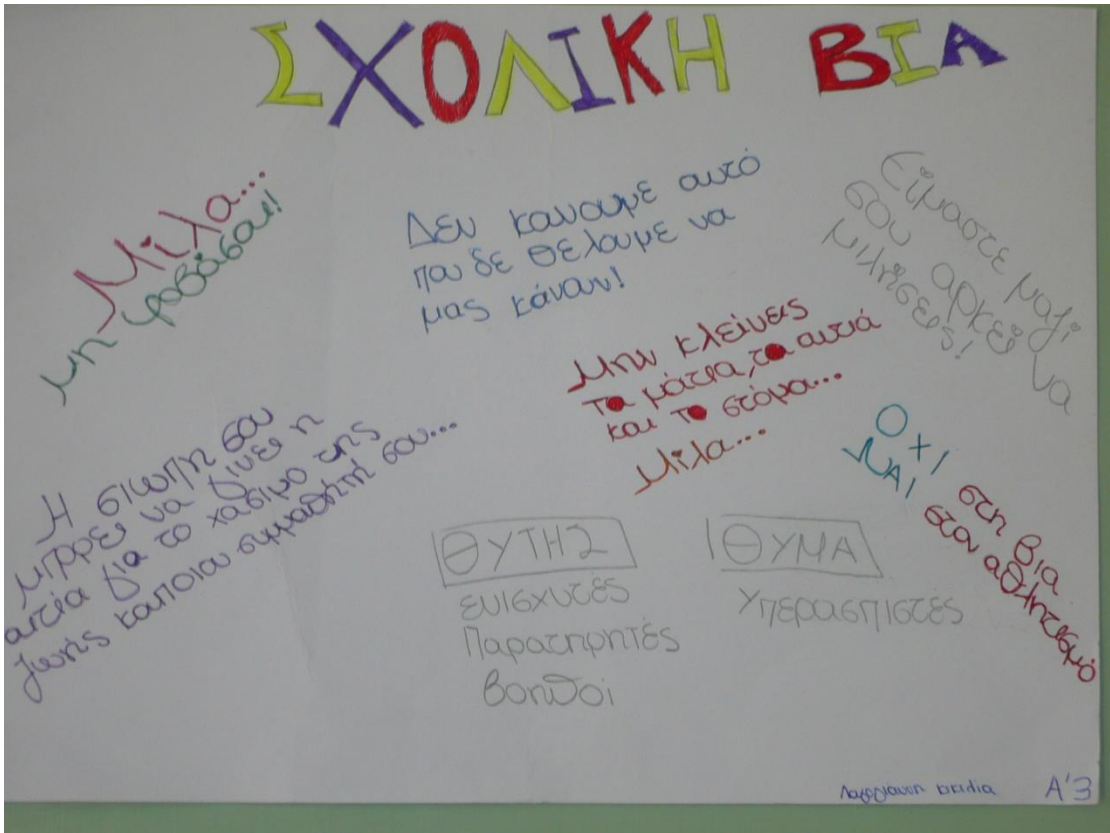 ΣΧΟΛΙΚΗ ΒΙΑ
Μίλα...
μη φοβάσαι!
Δεν κανουμε αυτό
που δε θελουμε να
μας κάνουν!
Είμαστε μαζί
σου αρκεί να
μιλήσεις!
Μην κλείνεις
τα μάτια, τα αυτιά
και το στόμα...
Μίλα...
Η σιωπη σου
μπορει να γινει η
αιτία για το χασιμο της
ζωής καποιου συμμαθητή σου...
ΟΧΙ στη βια
ΝΑΙ στον αθλητισμό
ΘΥΤΗΣ
ενισχυτές
Παρατηρητές
βοηθοί
ΘΥΜΑ
Υπερασπιστές
Α'3